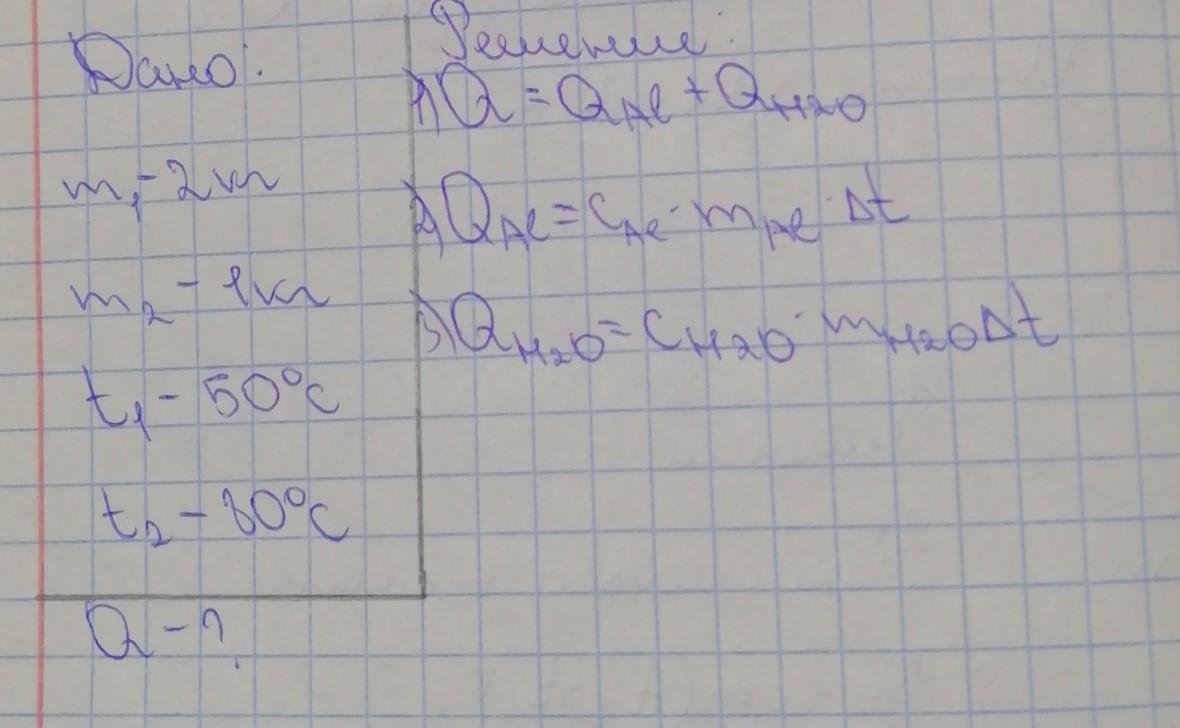 Дано:
m₁ - 2 кг
m₂ - 1 кг
t₁ - 50°C
t₂ - 80°C
Q - ?
Решение:
1) Q = QAl + QH₂O
2) QAl = cAl · mAl · Δt
3) QH₂O = cH₂O · mH₂O Δt